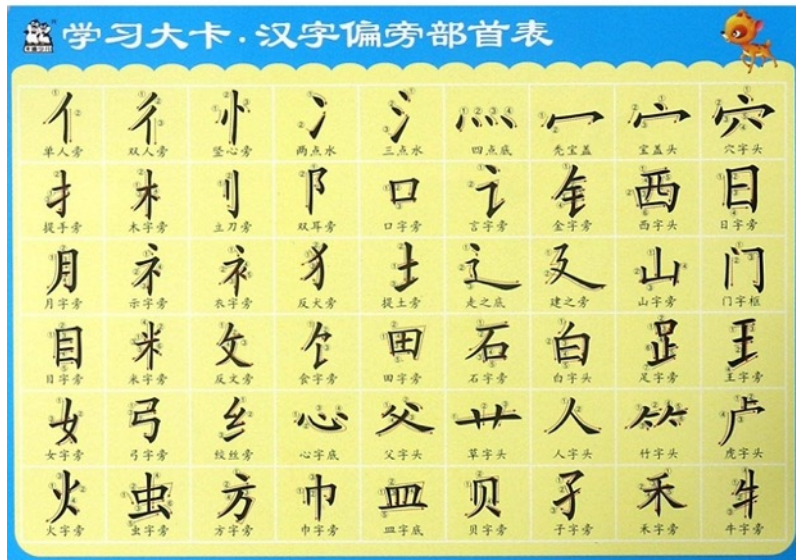 学习大卡·汉字偏旁部首表
亻 彳 忄 冫 氵 灬 冖 宀 穴
单人旁 双人旁 竖心旁 两点水 三点水 四点底 秃宝盖 宝盖头 穴字头
扌 木 刂 阝 口 讠 钅 西 日
提手旁 木字旁 立刀旁 双耳旁 口字旁 言字旁 金字旁 西字头 日字旁
月 礻 衤 犭 土 辶 廴 山 门
月字旁 示字旁 衣字旁 反犬旁 提土旁 走之底 建之旁 山字旁 门字框
目 米 攵 饣 田 石 白 𧾷 王
目字旁 米字旁 反文旁 食字旁 田字旁 石字旁 白字头 足字旁 王字旁
女 弓 纟 心 父 艹 人 𥫗 虍
女字旁 弓字旁 绞丝旁 心字底 父字头 草字头 人字头 竹字头 虎字头
火 虫 方 巾 皿 贝 子 禾 牛
火字旁 虫字旁 方字旁 巾字旁 皿字底 贝字旁 子字旁 禾字旁 牛字旁